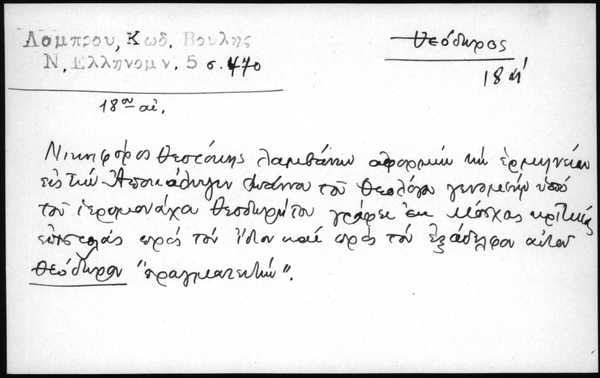 Λάμπρου, Κωδ. Βουλης
Ν. Ελληνομν. 5 σ. 470
Θεόδωρος
18 ή
18ου αἰ.
Νικηφόρος Θεοτόκης λαμβάνων ἀφορμήν τήν ἑρμηνείαν
εἰς τήν Ἀποκάλυψιν Ἰωάννου τοῦ Θεολόγου γενομένην ὑπό
τοῦ ἱερομονάχου Θεοδωρήτου γράφει ἐκ Μόσχας κριτικάς
ἐπιστολάς πρός τόν ἴδιον καί πρός τόν ἐξάδελφον αὐτοῦ
Θεόδωρον "πραγματευτήν".